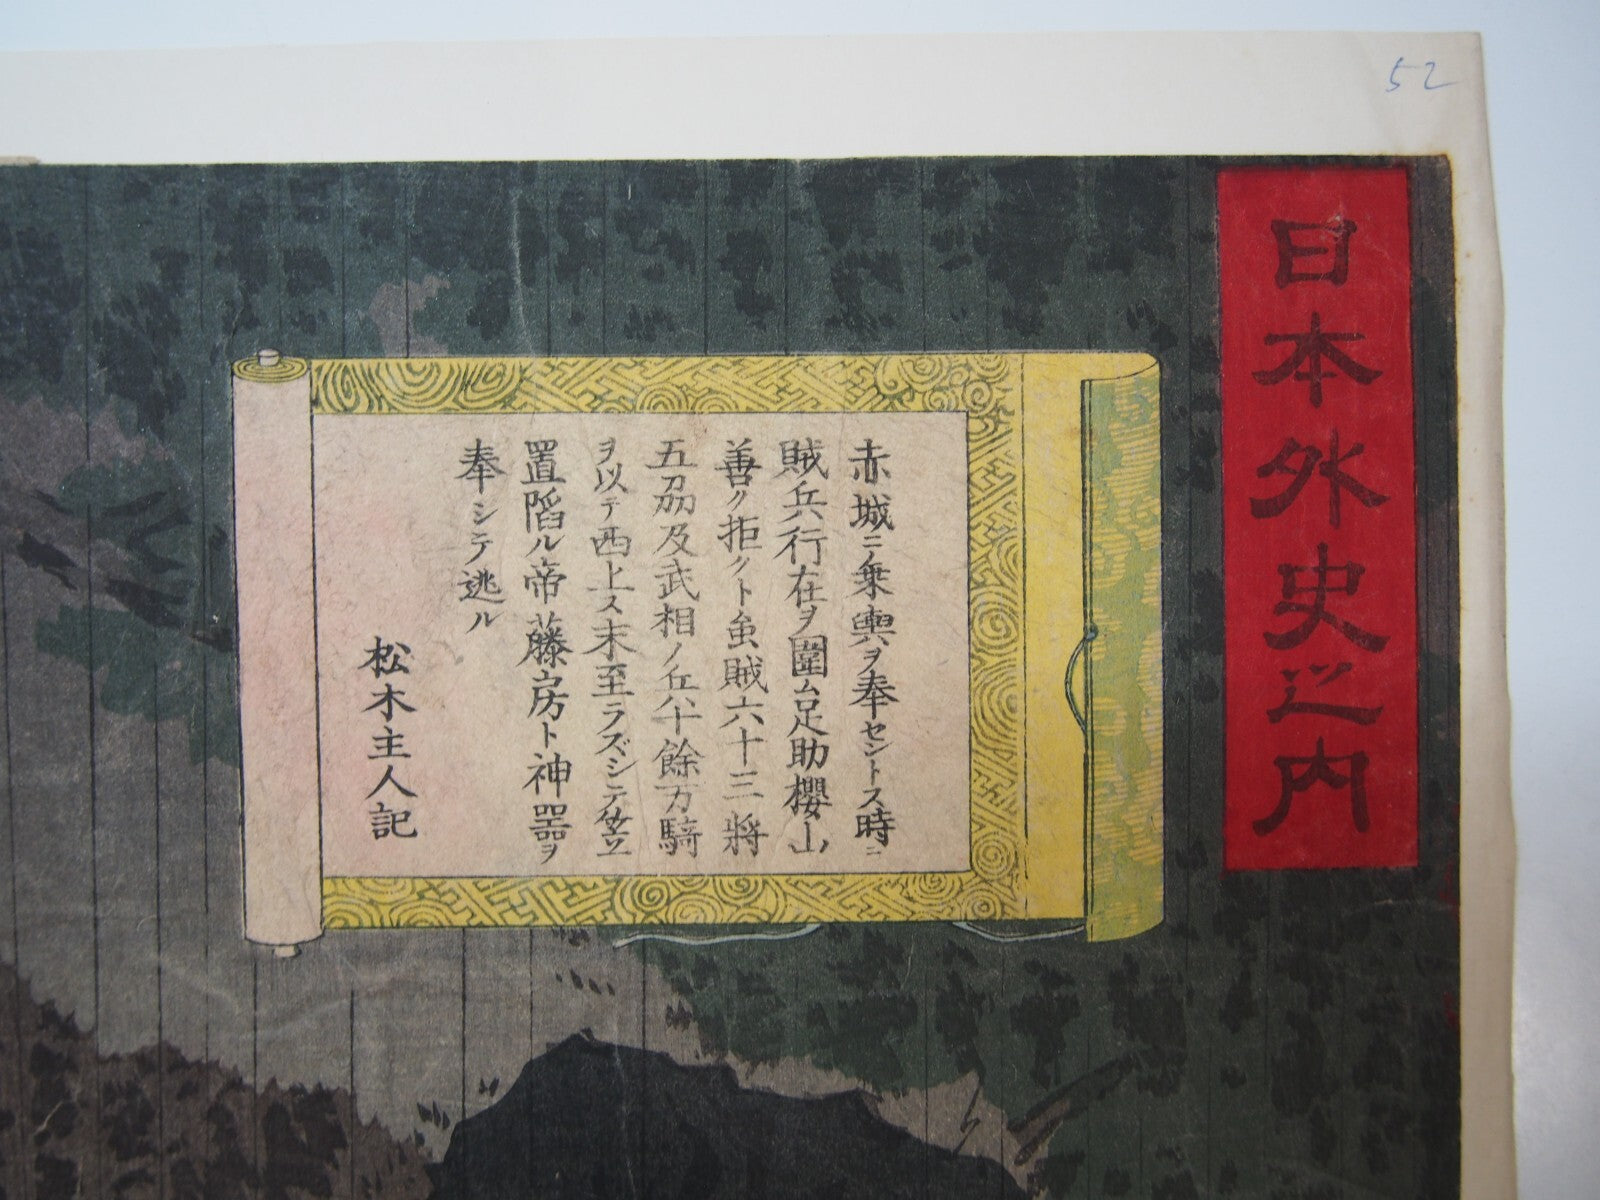 52
日本外史之内
赤城ニ乗輿ヲ奉セントス時ニ
賊兵行在ヲ圍ム足助櫻山
善ク拒クト虽賊六十三将
五刕及武相ノ兵八十餘万騎
ヲ以テ西上ス末至ラズシテ笠
置陷ル帝藤房ト神器ヲ
奉シテ逃ル
松木主人記